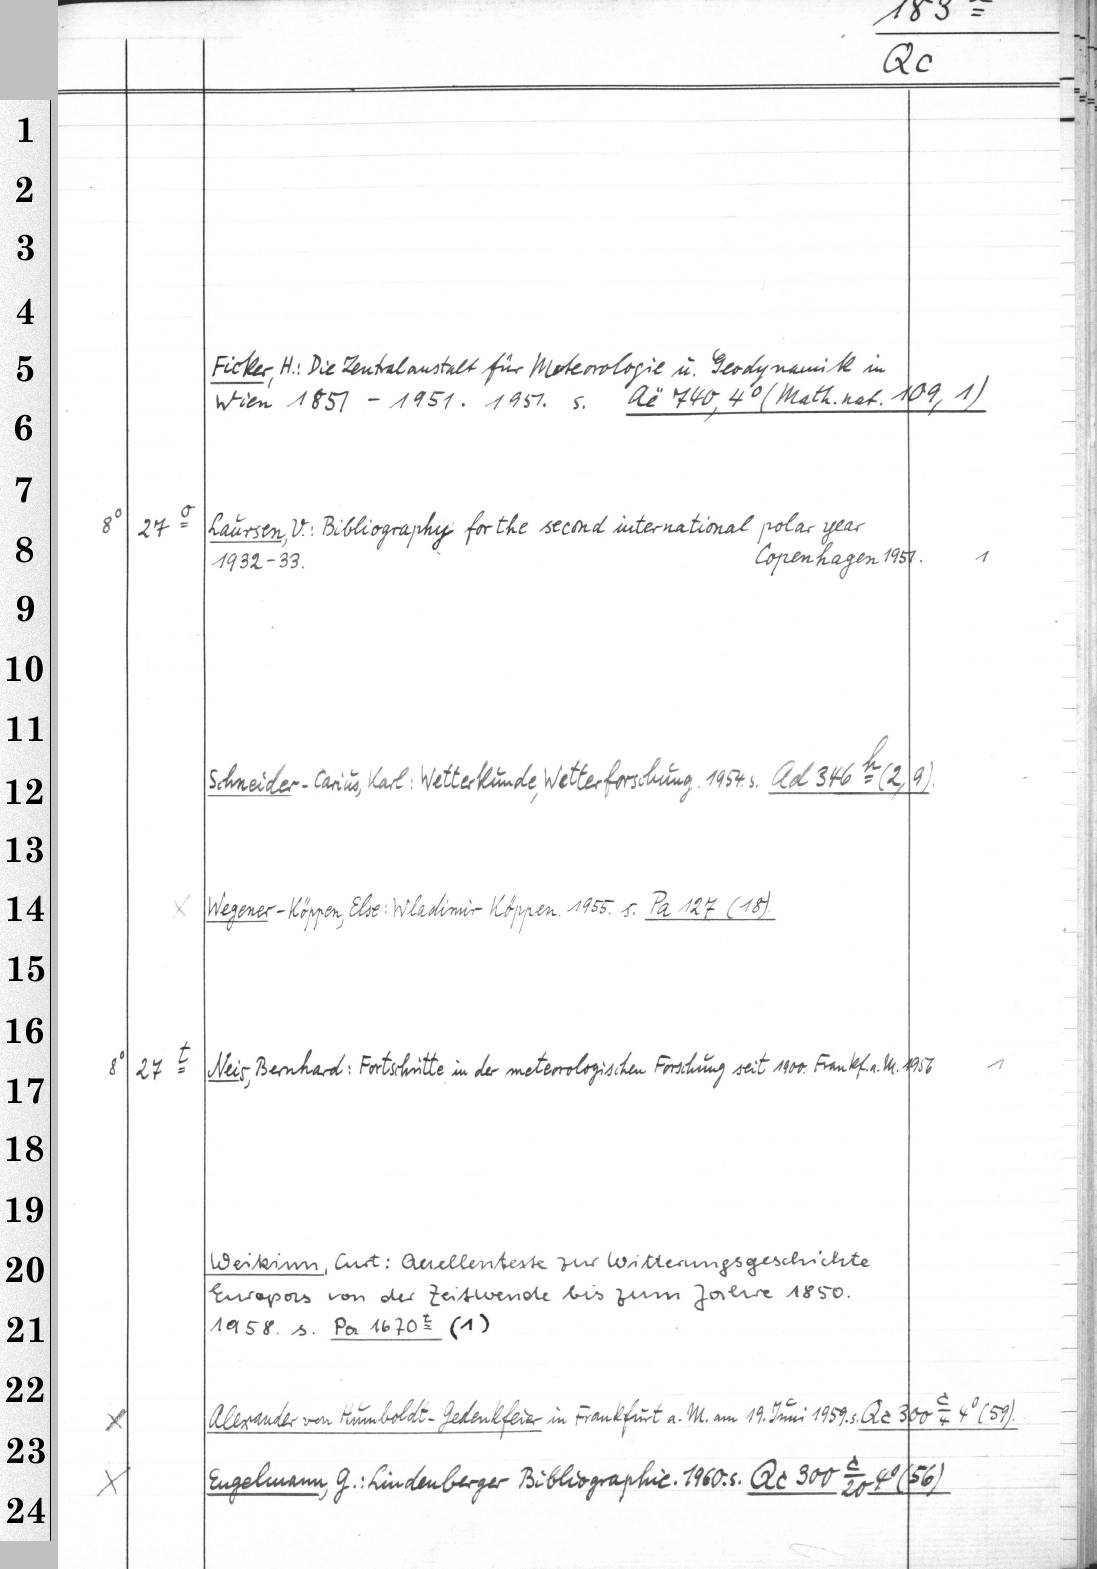 183
Qc
1
2
3
4
5
6
7
8
9
10
11
12
13
14
15
16
17
18
19
20
21
22
23
24
Ficker, H.: Die Zentralanstalt für Meteorologie u. Geodynamik in
Wien 1851 - 1951. 1951. s. Aë 740, 4° (Math. nat. 109, 1)
8° 27 o Laursen, V.: Bibliography for the second international polar year
1932-33. Copenhagen 1951. 1
Schneider-Carius, Karl: Wetterkunde, Wetterforschung. 1954. s. Ad 346 h (2, 9).
x Wegener-Köppen, Else: Wladimir Köppen. 1955. s. Pa 127 (18).
8° 27 t Neis, Bernhard: Fortschritte in der meteorologischen Forschung seit 1900. Frankf. a. M. 1956 1
Weikinn, Curt: Quellentexte zur Witterungsgeschichte
Europas von der Zeitwende bis zum Jahre 1850.
1958. s. Pa 1670 t (1)
x Alexander von Humboldt-Gedenkfeier in Frankfurt a. M. am 19. Juni 1959. s. Qc 300 c/4 4° (59).
x Engelmann, G.: Lindenberger Bibliographie. 1960. s. Qc 300 c/20 4° (56)